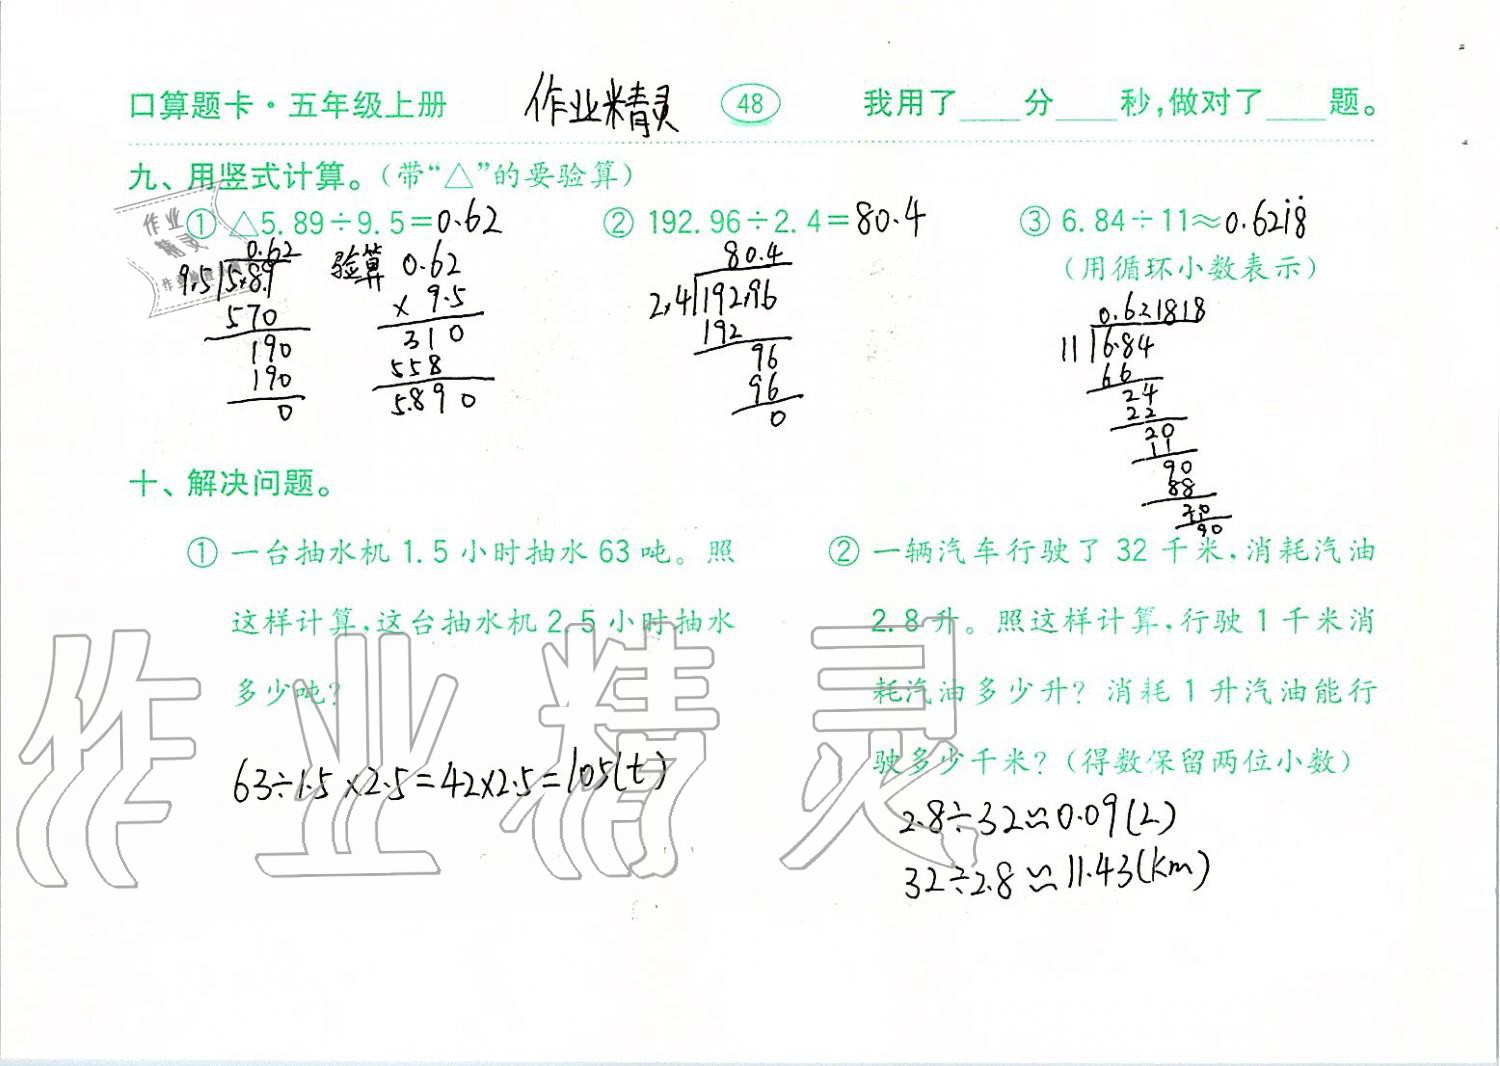 口算题卡·五年级上册 作业精灵 48 我用了____分____秒,做对了____题。
九、用竖式计算。(带“△”的要验算)
① △5.89÷9.5=0.62 ② 192.96÷2.4=80.4 ③ 6.84÷11≈0.621̇8̇
(用循环小数表示)
0.62
9.5 5.89
570
190
190
0
验算 0.62
× 9.5
310
558
5.890
80.4
2.4 192.96
192
96
96
0
0.621818
11 6.84
66
24
22
20
11
90
88
20
90
十、解决问题。
① 一台抽水机1.5小时抽水63吨。照
这样计算,这台抽水机2.5小时抽水
多少吨?
63÷1.5×2.5=42×2.5=105(t)
② 一辆汽车行驶了32千米,消耗汽油
2.8升。照这样计算,行驶1千米消
耗汽油多少升?消耗1升汽油能行
驶多少千米?(得数保留两位小数)
2.8÷32≈0.09(L)
32÷2.8≈11.43(km)
作业精灵
作业
精灵